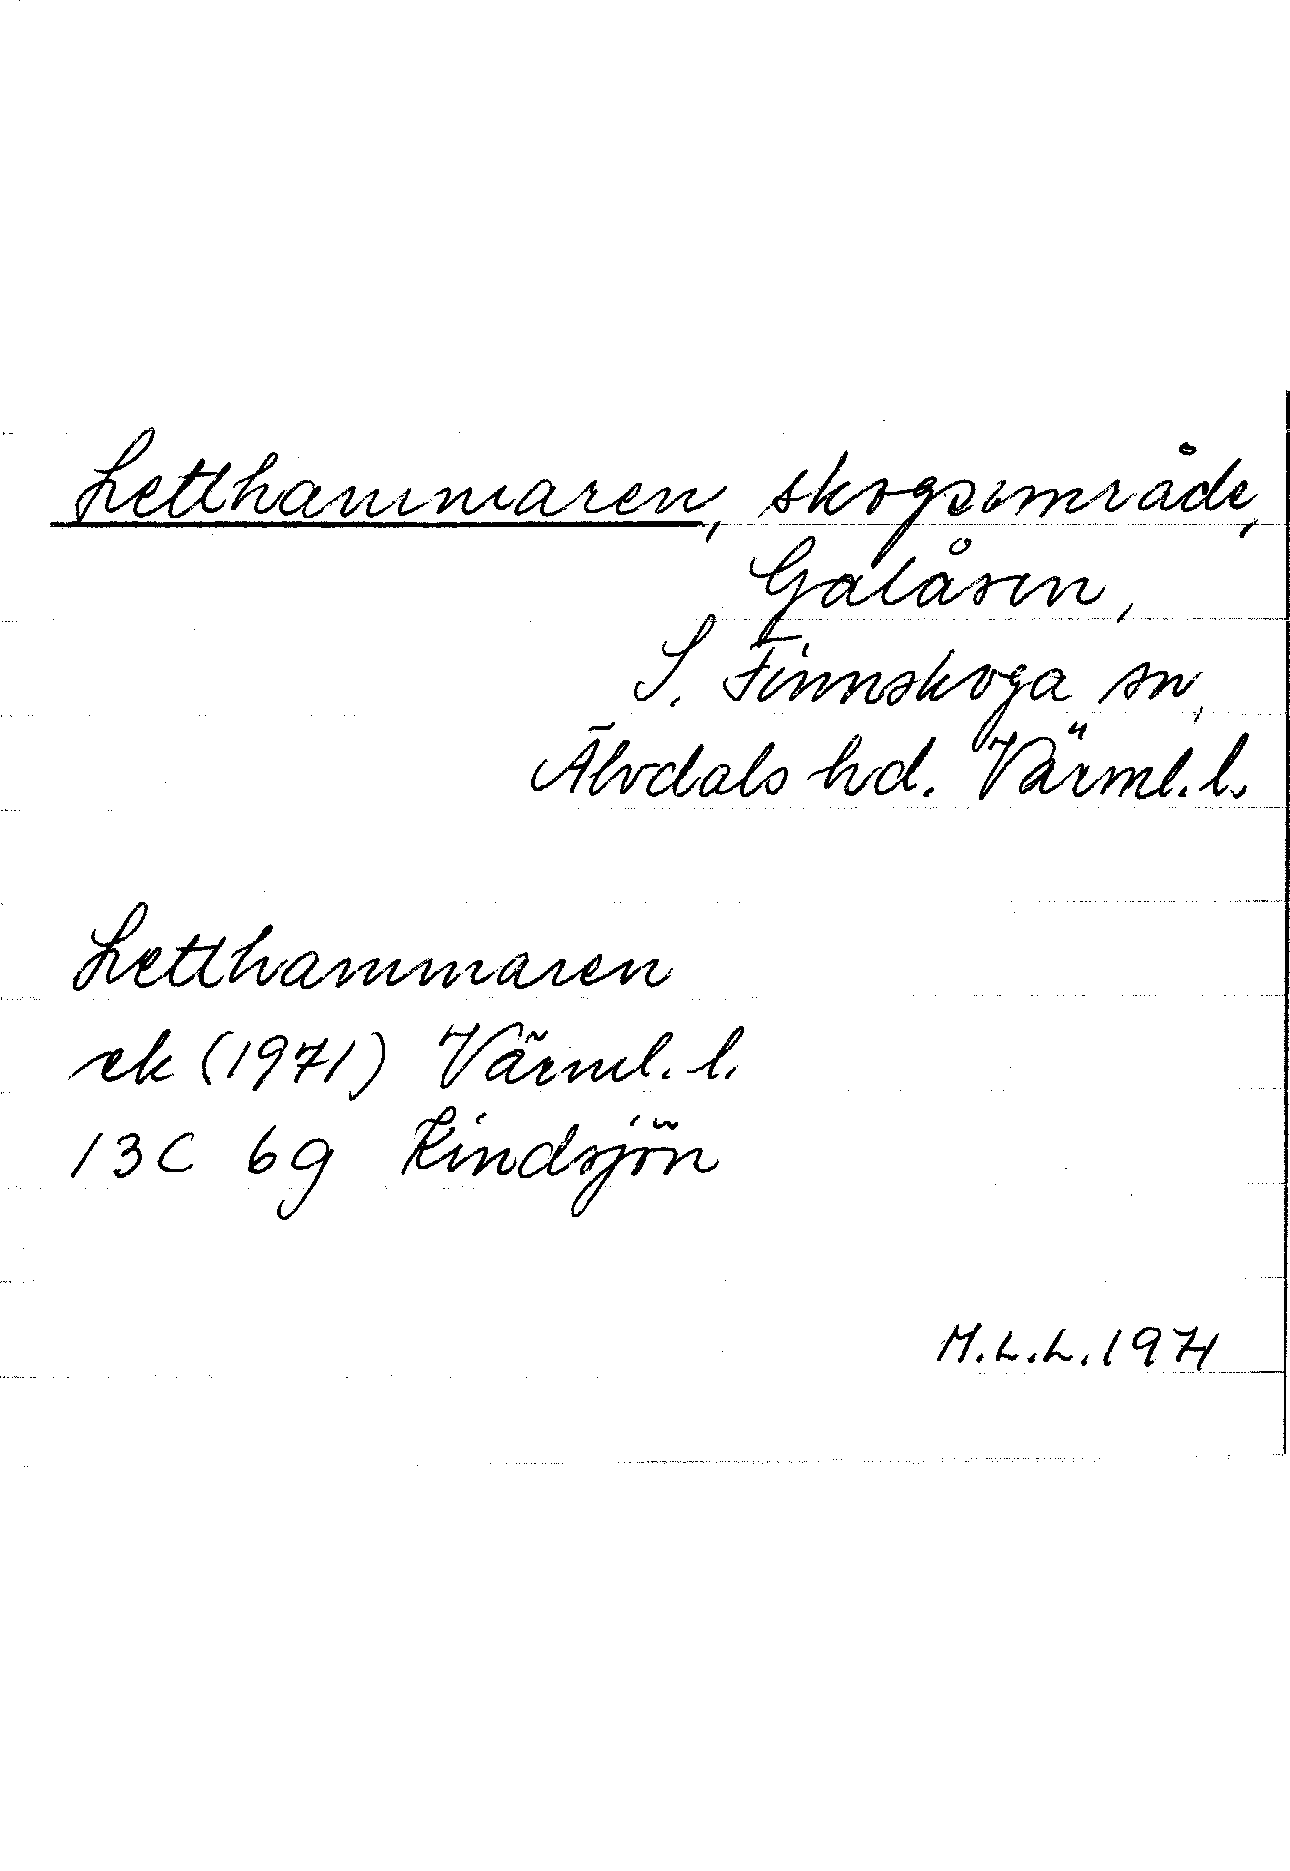 Letthammaren, skogsområde,
Galåsen,
S. Finnskoga sn,
Älvdals hd. Värml. l.
Letthammaren
ek (1971) Värml. l.
13C 6g Rindsjön
M.L.L. 1971